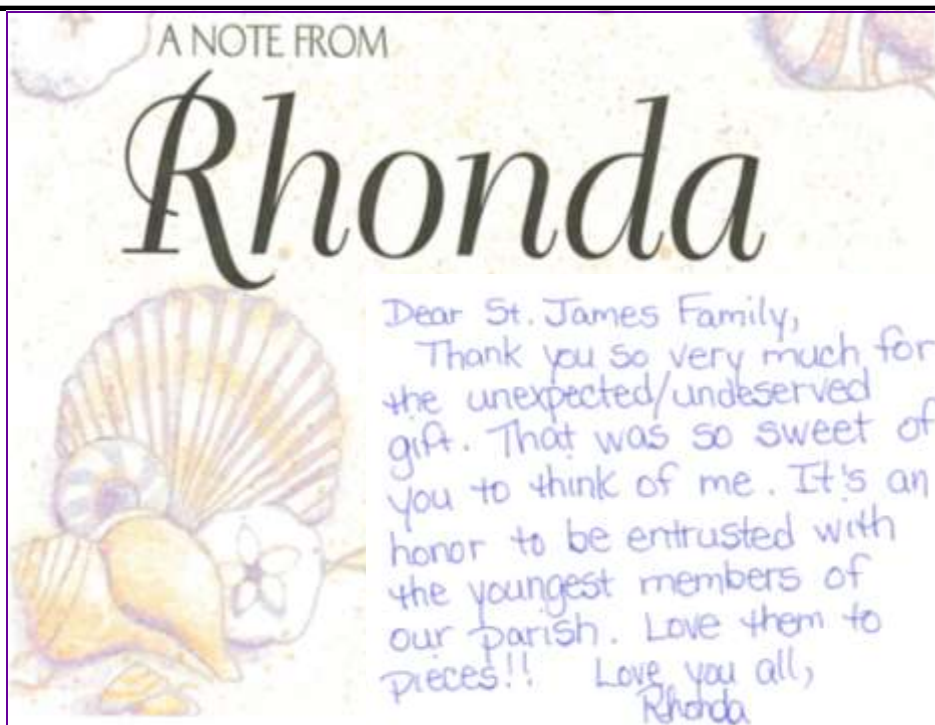 A NOTE FROM
Rhonda
Dear St. James Family,
Thank you so very much for
the unexpected/undeserved
gift. That was so sweet of
you to think of me. It's an
honor to be entrusted with
the youngest members of
our parish. Love them to
pieces!! Love you all,
Rhonda